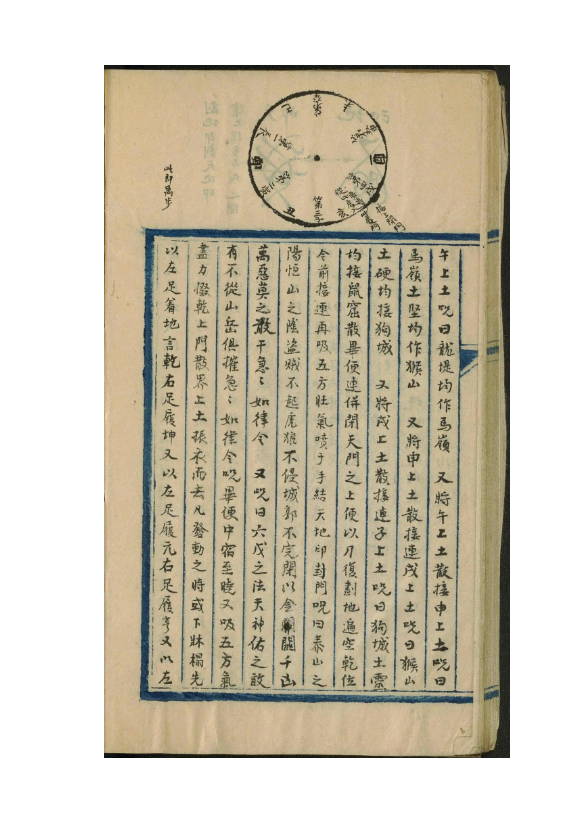 午上土呪曰龍堤均作馬嶺　又將午上土散接申上土呪曰
馬嶺土堅均作猴山　又將申上土散接連戌上土呪曰猴山
土硬均接狗城　又將戌上土散接連子上土呪曰狗城土靈
均接鼠窟散畢便連併閉天門之上便以刀復劃地遍空乾位
令前接連再吸五方旺氣噴于手結天地印封門呪曰泰山之
陽恒山之陰盜賊不起虎狼不侵城郭不完閉以金關千凶
萬惡莫之敢干急〻如律令　又呪曰六戊之法天神佑之敢
有不從山岳俱摧急〻如律令呪畢便中宿至曉又吸五方氣
盡力掇乾上門散界上土振衣而去凡發動之時或下牀榻先
以左足着地言乾右足履坤又以左足履元右足履亨又以左
此即禹步
午
未
酉
戌
第三
丑
卯
巳